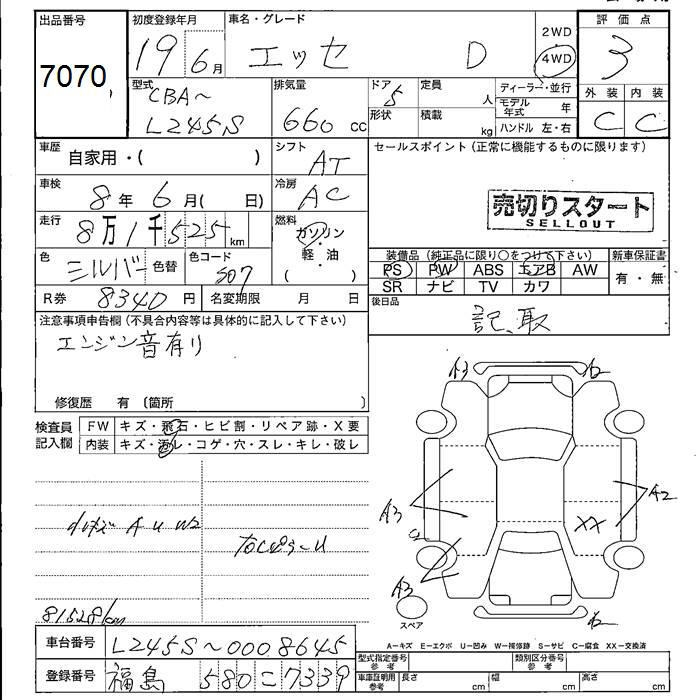 出品番号 初度登録年月 車名・グレード 2WD 評価点
7070 19 6月 エッセ D 4WD 3
型式 排気量 ドア 5 定員 人 ディーラー・並行 外装 内装
CBA〜 モデル年式 年
L245S 660 cc 形状 積載 kg ハンドル 左・右 C C
車歴 自家用・( ) シフト AT セールスポイント (正常に機能するものに限ります)
車検 8年 6月( 日) 冷房 AC
売切りスタート
SELLOUT
走行 8万1千525km 燃料 ガソリン
軽・油
( )
色 シルバー 色替 色コード S07
装備品 (純正品に限り○をつけて下さい) 新車保証書
PS PW ABS エアB AW 有・無
SR ナビ TV カワ
R券 8340円 名変期限 月 日 後日品
記、取
注意事項申告欄 (不具合内容等は具体的に記入して下さい)
エンジン音有り
修復歴 有 (箇所 )
検査員記入欄 FW キズ・飛石・ヒビ割・リペア跡・X要
内装 キズ・汚レ・コゲ・穴・スレ・キレ・破レ
A3
A3 A2
XX
A3
A U W2
81528km
スペア
A－キズ E－エクボ U－凹み W－補修跡 S－サビ C－腐食 XX－交換済
車台番号 L245S〜0008645
型式指定番号 参考 類別区分番号 参考
登録番号 福島 580 こ 7339
車庫証明用 参考 長さ cm 幅 cm 高さ cm